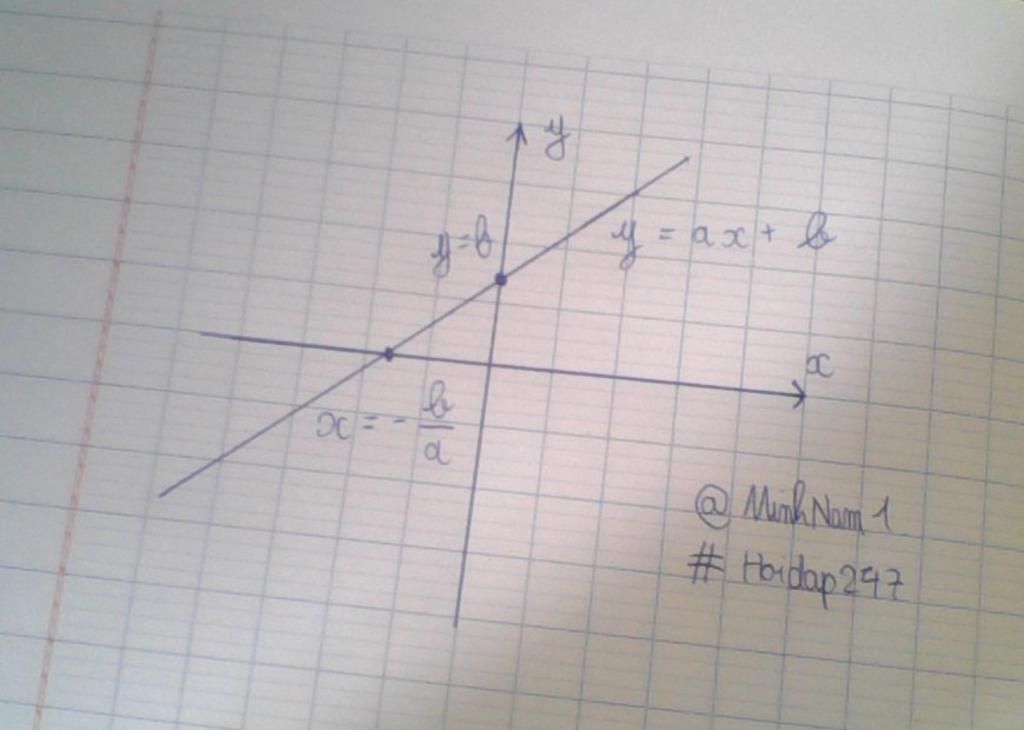 y
y=b
y = ax + b
x
x = - b/a
@MinhNam1
#Hoidap247